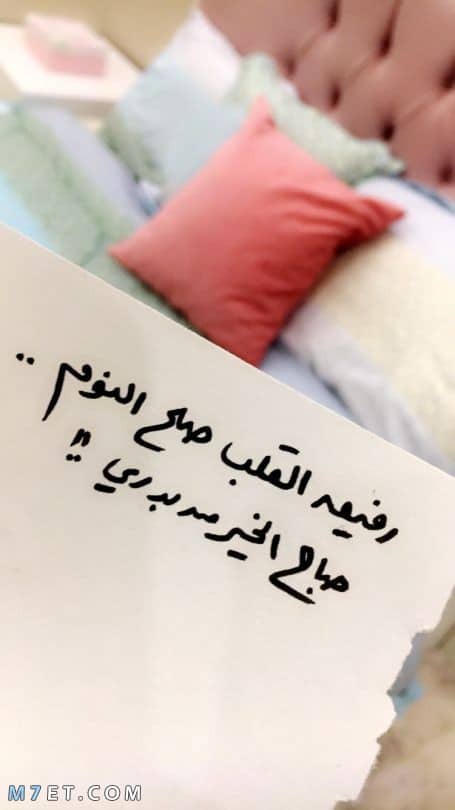 رفيعه القلب صلح النوم ..
صباح الخير من بدري !!
M7ET.COM